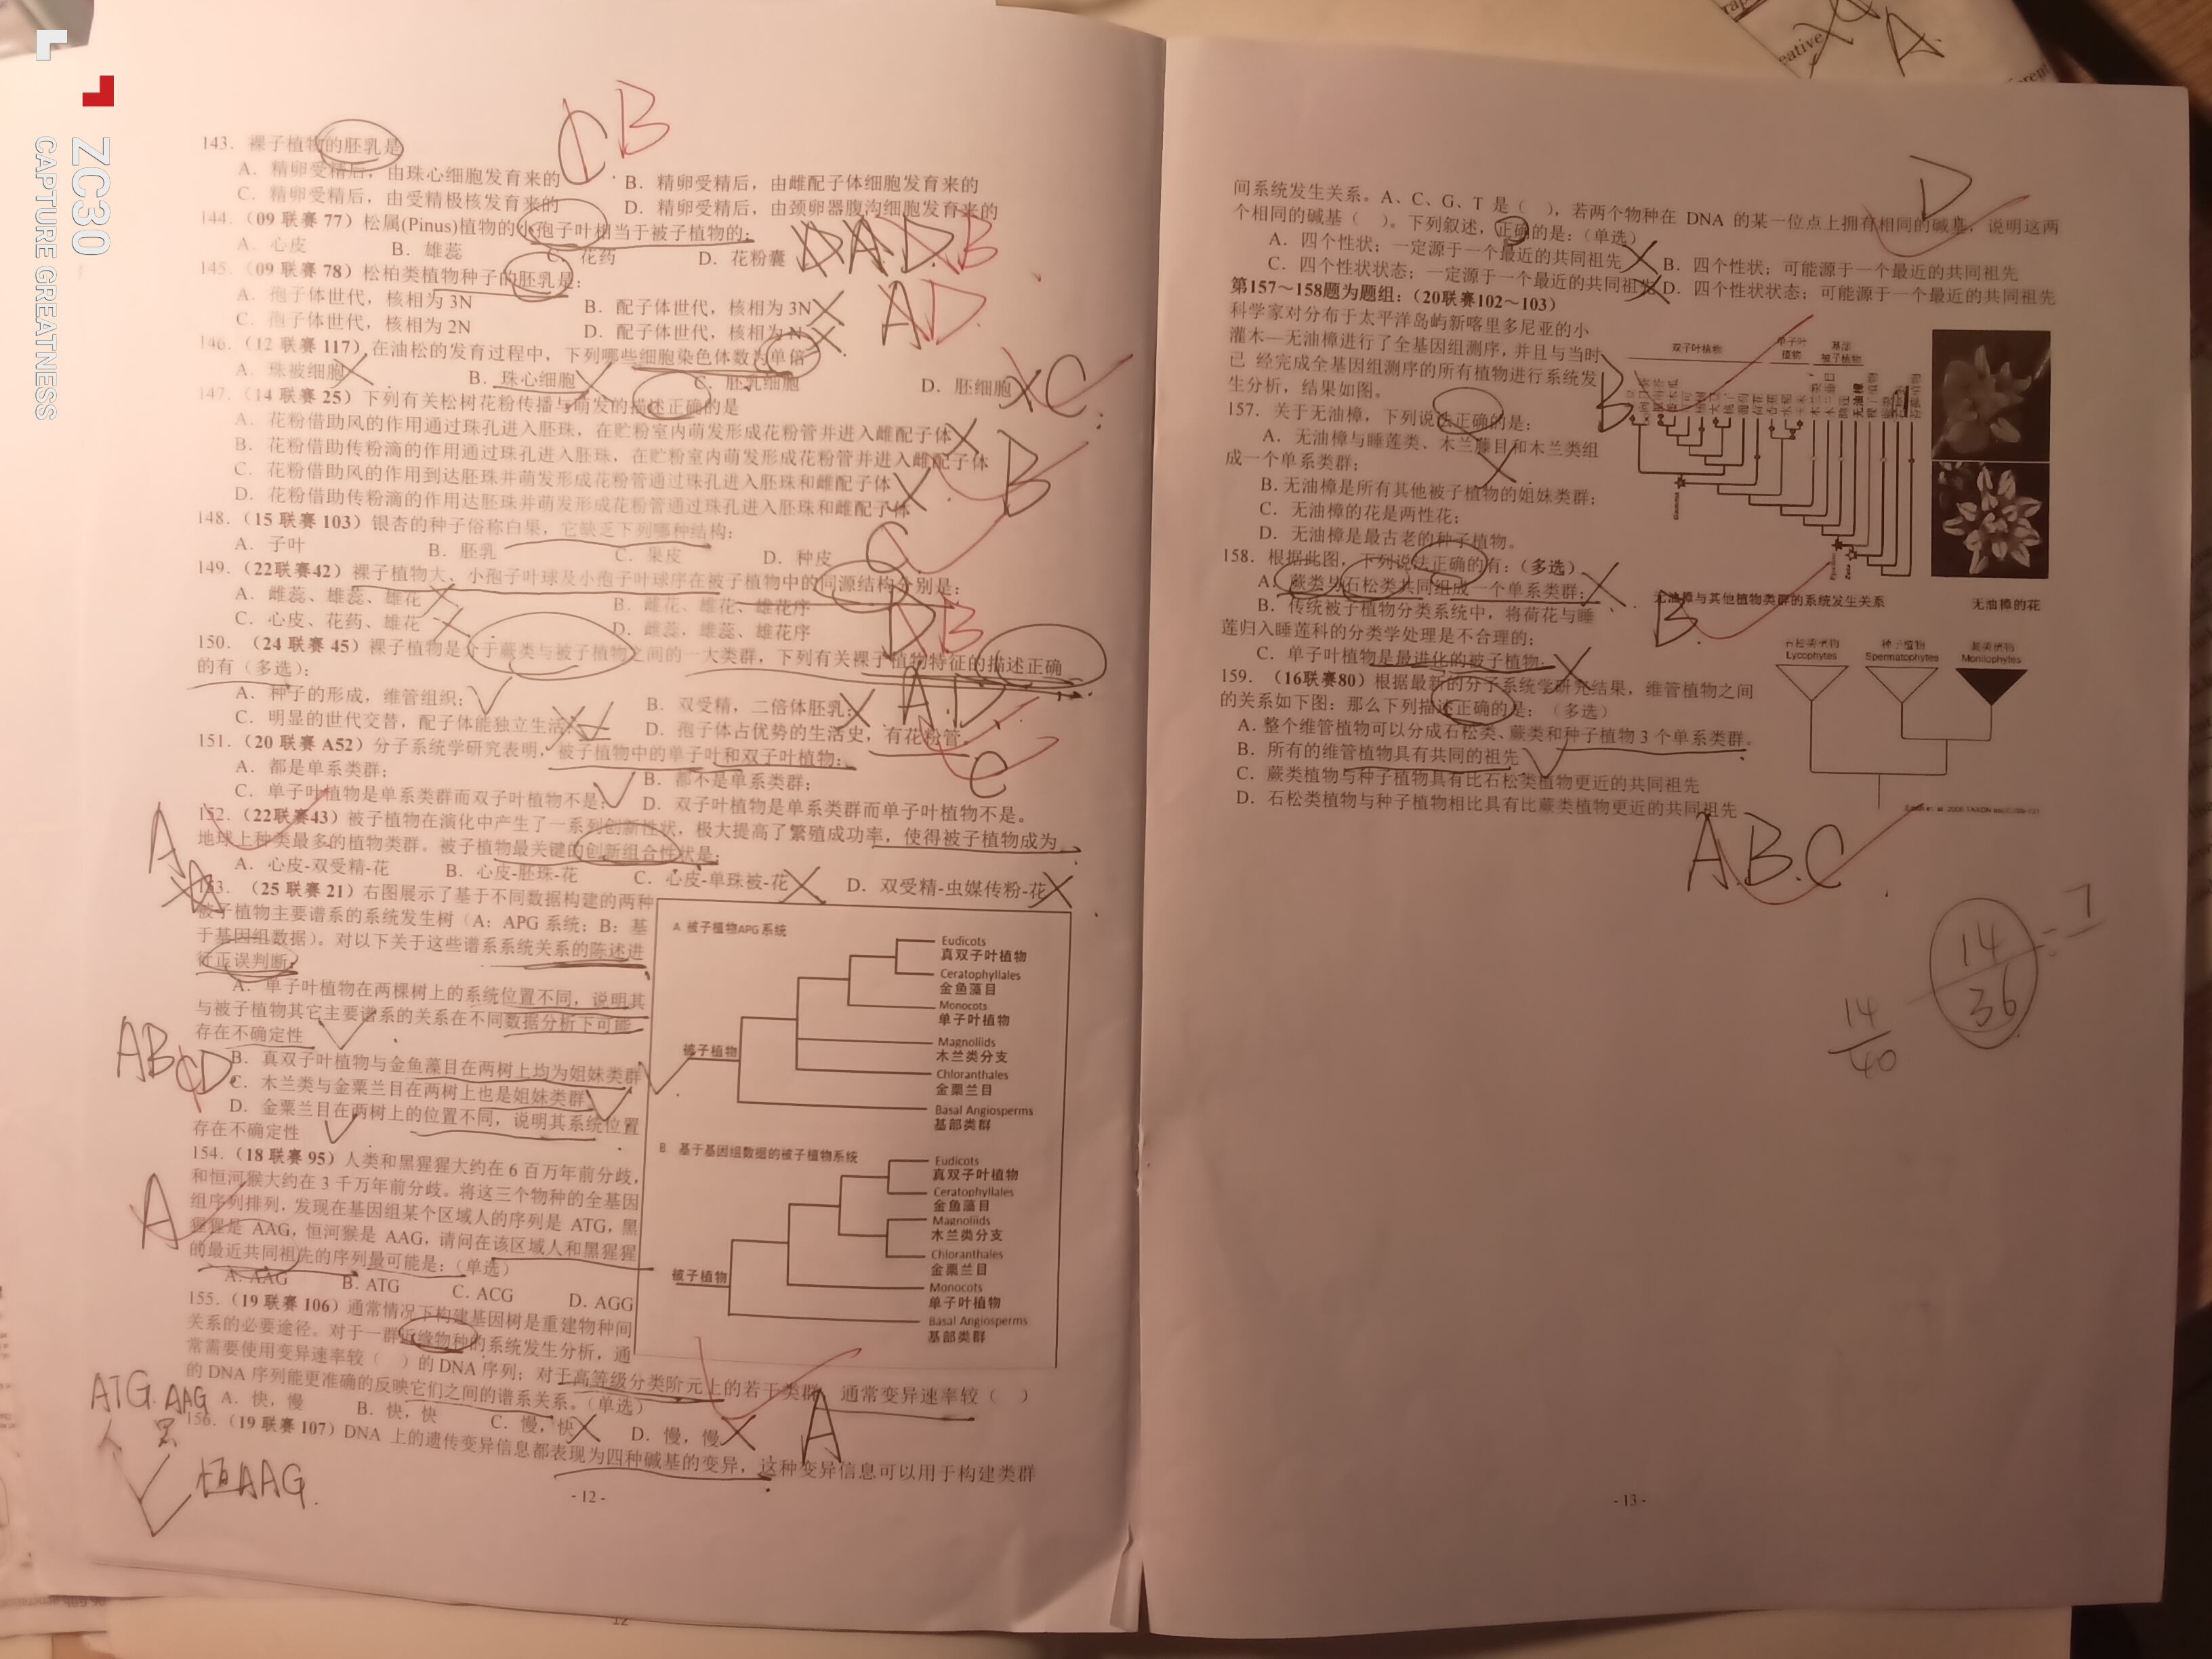 ZC30
CAPTURE GREATNESS
CB
143．裸子植物的胚乳是
A．精卵受精后，由珠心细胞发育来的
B．精卵受精后，由雌配子体细胞发育来的
C．精卵受精后，由受精极核发育来的
D．精卵受精后，由颈卵器腹沟细胞发育来的
144．（09 联赛 77）松属(Pinus)植物的小孢子叶相当于被子植物的：
A．心皮 B．雄蕊 C．花药 D．花粉囊
B
145．（09 联赛 78）松柏类植物种子的胚乳是：
A．孢子体世代，核相为 3N B．配子体世代，核相为 3N
C．孢子体世代，核相为 2N D．配子体世代，核相为 N
AD
146．（12 联赛 117）在油松的发育过程中，下列哪些细胞染色体数为单倍
A．珠被细胞 B．珠心细胞 C．胚乳细胞 D．胚细胞
C
147．（14 联赛 25）下列有关松树花粉传播与萌发的描述正确的是
A．花粉借助风的作用通过珠孔进入胚珠，在贮粉室内萌发形成花粉管并进入雌配子体
B．花粉借助传粉滴的作用通过珠孔进入胚珠，在贮粉室内萌发形成花粉管并进入雌配子体
C．花粉借助风的作用到达胚珠并萌发形成花粉管通过珠孔进入胚珠和雌配子体
D．花粉借助传粉滴的作用达胚珠并萌发形成花粉管通过珠孔进入胚珠和雌配子体
B
148．（15 联赛 103）银杏的种子俗称白果，它缺乏下列哪种结构：
A．子叶 B．胚乳 C．果皮 D．种皮
C
149．（22联赛42）裸子植物大、小孢子叶球及小孢子叶球序在被子植物中的同源结构分别是：
A．雌蕊、雄蕊、雄花 B．雌花、雄花、雄花序
C．心皮、花药、雄花 D．雌蕊，雄蕊、雄花序
DB
150．（24 联赛 45）裸子植物是介于蕨类与被子植物之间的一大类群，下列有关裸子植物特征的描述正确
的有（多选）：
A．种子的形成，维管组织； B．双受精，二倍体胚乳；
C．明显的世代交替，配子体能独立生活； D．孢子体占优势的生活史，有花粉管。
A.D
151．（20 联赛 A52）分子系统学研究表明，被子植物中的单子叶和双子叶植物：
A．都是单系类群； B．都不是单系类群；
C．单子叶植物是单系类群而双子叶植物不是； D．双子叶植物是单系类群而单子叶植物不是。
C
152．（22联赛43）被子植物在演化中产生了一系列创新性状，极大提高了繁殖成功率，使得被子植物成为
地球上种类最多的植物类群。被子植物最关键的创新组合性状是：
A．心皮-双受精-花 B．心皮-胚珠-花 C．心皮-单珠被-花 D．双受精-虫媒传粉-花
A
153．（25 联赛 21）右图展示了基于不同数据构建的两种
被子植物主要谱系的系统发生树（A：APG 系统；B：基
于基因组数据）。对以下关于这些谱系系统关系的陈述进
行正误判断：
A．单子叶植物在两棵树上的系统位置不同，说明其
与被子植物其它主要谱系的关系在不同数据分析下可能
存在不确定性
B．真双子叶植物与金鱼藻目在两树上均为姐妹类群
C．木兰类与金粟兰目在两树上也是姐妹类群
D．金粟兰目在两树上的位置不同，说明其系统位置
存在不确定性
ABCD
A. 被子植物APG系统
Eudicots
真双子叶植物
Ceratophyllales
金鱼藻目
Monocots
单子叶植物
Magnoliids
木兰类分支
被子植物
Chloranthales
金粟兰目
Basal Angiosperms
基部类群
B 基于基因组数据的被子植物系统
Eudicots
真双子叶植物
Ceratophyllales
金鱼藻目
Magnoliids
木兰类分支
Chloranthales
金粟兰目
被子植物
Monocots
单子叶植物
Basal Angiosperms
基部类群
154．（18 联赛 95）人类和黑猩猩大约在 6 百万年前分歧，
和恒河猴大约在 3 千万年前分歧。将这三个物种的全基因
组序列排列，发现在基因组某个区域人的序列是 ATG，黑
猩猩是 AAG，恒河猴是 AAG，请问在该区域人和黑猩猩
的最近共同祖先的序列最可能是：（单选）
A. AAG B. ATG C. ACG D. AGG
A
155．（19 联赛 106）通常情况下构建基因树是重建物种间
关系的必要途径。对于一群近缘物种的系统发生分析，通
常需要使用变异速率较（ ）的 DNA 序列；对于高等级分类阶元上的若干类群，通常变异速率较（ ）
的 DNA 序列能更准确的反映它们之间的谱系关系。（单选）
A．快，慢 B．快，快 C．慢，快 D．慢，慢
A
156．（19 联赛 107）DNA 上的遗传变异信息都表现为四种碱基的变异，这种变异信息可以用于构建类群
ATG. AAG
人 黑
恒AAG.
- 12 -
间系统发生关系。A、C、G、T 是（ ），若两个物种在 DNA 的某一位点上拥有相同的碱基，说明这两
个相同的碱基（ ）。下列叙述，正确的是：（单选）
A．四个性状；一定源于一个最近的共同祖先 B．四个性状；可能源于一个最近的共同祖先
C．四个性状状态；一定源于一个最近的共同祖先 D．四个性状状态；可能源于一个最近的共同祖先
D
第157～158题为题组：（20联赛102～103）
科学家对分布于太平洋岛屿新喀里多尼亚的小
灌木—无油樟进行了全基因组测序，并且与当时
已 经完成全基因组测序的所有植物进行系统发
生分析，结果如图。
157．关于无油樟，下列说法正确的是：
A．无油樟与睡莲类、木兰藤目和木兰类组
成一个单系类群；
B. 无油樟是所有其他被子植物的姐妹类群；
C．无油樟的花是两性花；
D．无油樟是最古老的种子植物。
B
双子叶植物
单子叶
植物
基部
被子植物
无油樟
Gamma
无油樟与其他植物类群的系统发生关系
无油樟的花
158．根据此图，下列说法正确的有：（多选）
A．蕨类与石松类共同组成一个单系类群；
B．传统被子植物分类系统中，将荷花与睡
莲归入睡莲科的分类学处理是不合理的；
C．单子叶植物是最进化的被子植物。
B
159．（16联赛80）根据最新的分子系统学研究结果，维管植物之间
的关系如下图：那么下列描述正确的是：（多选）
A. 整个维管植物可以分成石松类、蕨类和种子植物 3 个单系类群。
B．所有的维管植物具有共同的祖先
C．蕨类植物与种子植物具有比石松类植物更近的共同祖先
D．石松类植物与种子植物相比具有比蕨类植物更近的共同祖先
石松类植物
Lycophytes
种子植物
Spermatophytes
蕨类植物
Monilophytes
A.B.C
14
36
14
40
- 13 -